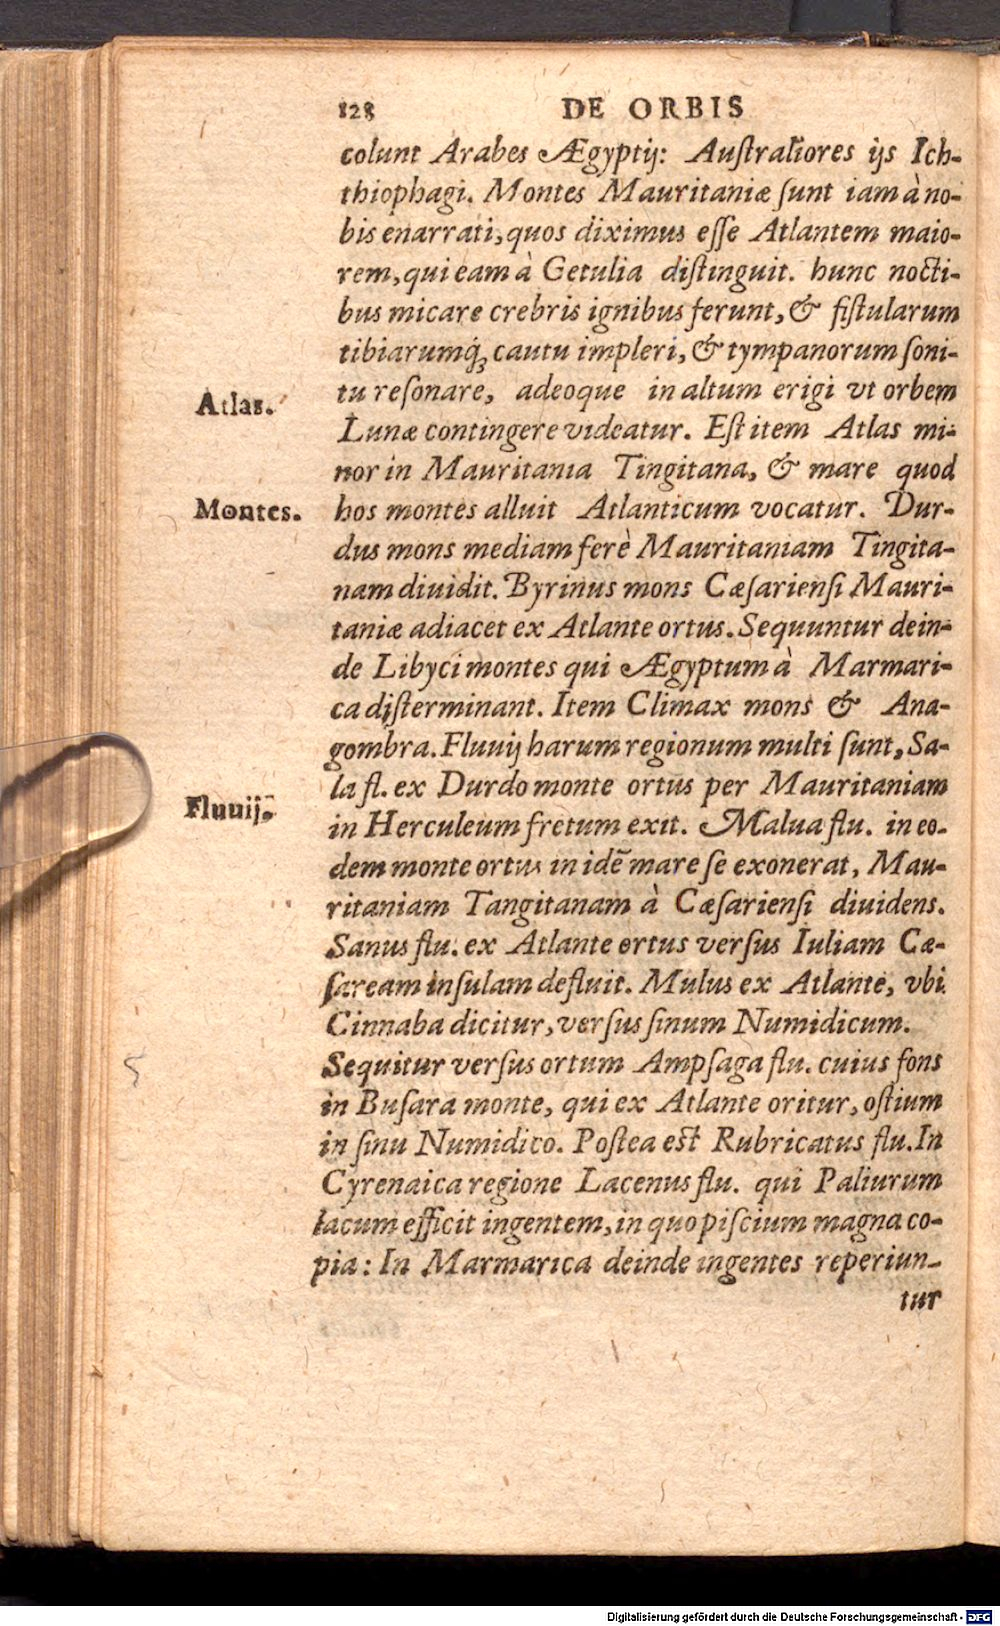 128 DE ORBIS
colunt Arabes Ægyptij: Auſtraliores ijs Ich-
thiophagi. Montes Mauritaniæ ſunt iam à no-
bis enarrati, quos diximus eſſe Atlantem maio-
rem, qui eam à Getulia diſtinguit. hunc nocti-
bus micare crebris ignibus ferunt, & fiſtularum
tibiarumq́; cautu impleri, & tympanorum ſoni-
tu reſonare, adeoque in altum erigi vt orbem
Atlas.
Lunæ contingere videatur. Eſt item Atlas mi-
nor in Mauritania Tingitana, & mare quod
Montes.
hos montes alluit Atlanticum vocatur. Dur-
dus mons mediam ferè Mauritaniam Tingita-
nam diuidit. Byrinus mons Cæſarienſi Mauri-
taniæ adiacet ex Atlante ortus. Sequuntur dein-
de Libyci montes qui Ægyptum à Marmari-
ca diſterminant. Item Climax mons & Ana-
gombra. Fluuij harum regionum multi ſunt, Sa-
la fl. ex Durdo monte ortus per Mauritaniam
Fluuij.
in Herculeum fretum exit. Malua flu. in eo-
dem monte ortus in idẽ mare ſe exonerat, Mau-
ritaniam Tangitanam à Cæſarienſi diuidens.
Sanus flu. ex Atlante ortus verſus Iuliam Cæ-
ſaream inſulam defluit. Mulus ex Atlante, vbi
Cinnaba dicitur, verſus ſinum Numidicum.
Sequitur verſus ortum Ampſaga flu. cuius fons
in Buſara monte, qui ex Atlante oritur, oſtium
in ſinu Numidico. Poſtea eſt Rubricatus flu. In
Cyrenaica regione Lacenus flu. qui Paliurum
lacum efficit ingentem, in quo piſcium magna co-
pia: In Marmarica deinde ingentes reperiun-
tur
Digitalisierung gefördert durch die Deutsche Forschungsgemeinschaft - DFG